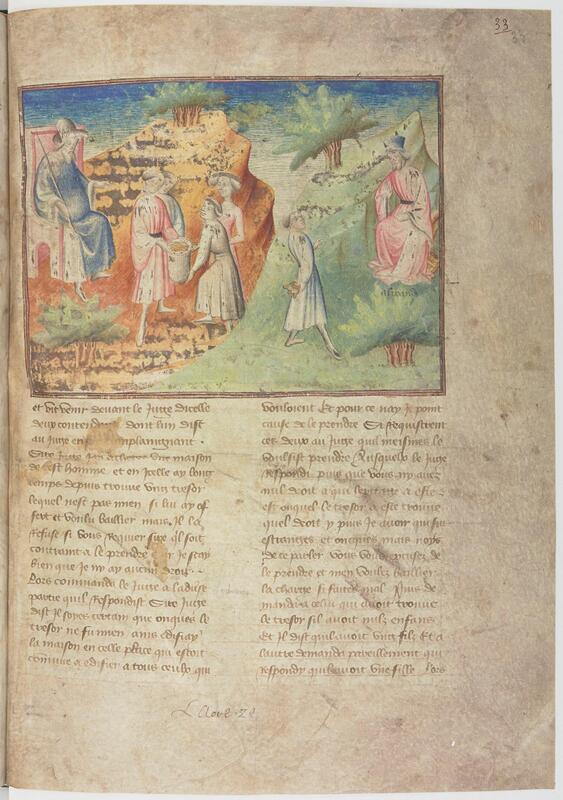 33
et vit venir devant le Juge dicelle
deux contend dont lun dist
au Juge en complaignant
Sire Juge une maison
de cest homme et en Icelle ay long
temps depuis trouve ung tresor
lequel nest pas mien si luy ay of
fert et voulu baillier mais Il la
Refuse si vous Requier sire quil soit
contraint a le prendre car Je scay
bien que Je ny ay aucun droit
Lors commanda le Juge a ladvse
partie quil Respondist Sire Juge
dist Il soyes certain que onques le
tresor ne fu mien ains edifiay
la maison en celle place qui estoit
commune a edifier a tous ceulx qui
vouloient Et pour ce nay Je point
cause de le prendre Si Requistrent
ces deux au Juge quil meismes le
voulsist prendre Ausquelx le Juge
Respondi puis que vous
droit a qui a este
et onquel le tresor a este trouve
quel droit y puis Je avoir qui sui
estrangier et onques mais noys
de ce parler vous vous excusez de
le prendre et men voulez baillier
la charge si faites mal Puis de
manda a celui qui avoit trouve
le tresor sil avoit nulz enfans
Et Il dist quil avoit ung filz Et a
lautre demanda pareillement qui
Respondy quil avoit une fille Lors